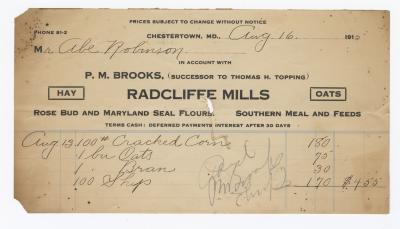 PRICES SUBJECT TO CHANGE WITHOUT NOTICE
PHONE 81-2
CHESTERTOWN, MD., Aug 16 191
Mr Abe Robinson
IN ACCOUNT WITH
P. M. BROOKS, (SUCCESSOR TO THOMAS H. TOPPING)
HAY RADCLIFFE MILLS OATS
ROSE BUD AND MARYLAND SEAL FLOURS. SOUTHERN MEAL AND FEEDS
TERMS CASH: DEFERRED PAYMENTS INTEREST AFTER 30 DAYS
Aug 13 100# Cracked Corn 180
1 bu Oats 75
1 " Bran 30
100 Ship 170 $4.55
Paid
PM Brooks